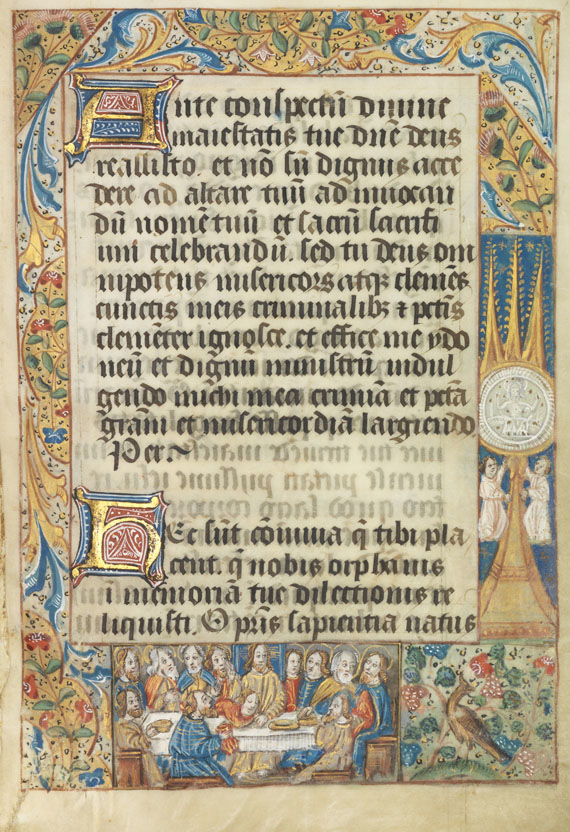 Ante conspectū diuine
maiestatis tue dn̄e deus
re assisto. et nō sū dignus acce
dere ad altare tuū ad inuocan
dū nomē tuū et sacrū sacrifi
ciū celebrandū. sed tu deus om
nipotens misericors atqꝫ clemēs
cunctis meis criminalibꝫ ⁊ pctīs
clemēter ignosce. et effice me ydo
neū et dignū ministrū indul
gendo michi mea crimīa et pctā
gratiā et misericordiā largiendo
Per
Hec sūt cōuiuia q̄ tibi pla
cent. q̄ nobis orphanis
in memoriā tue dilectionis re
liquisti. O pr̄is sapientia natus